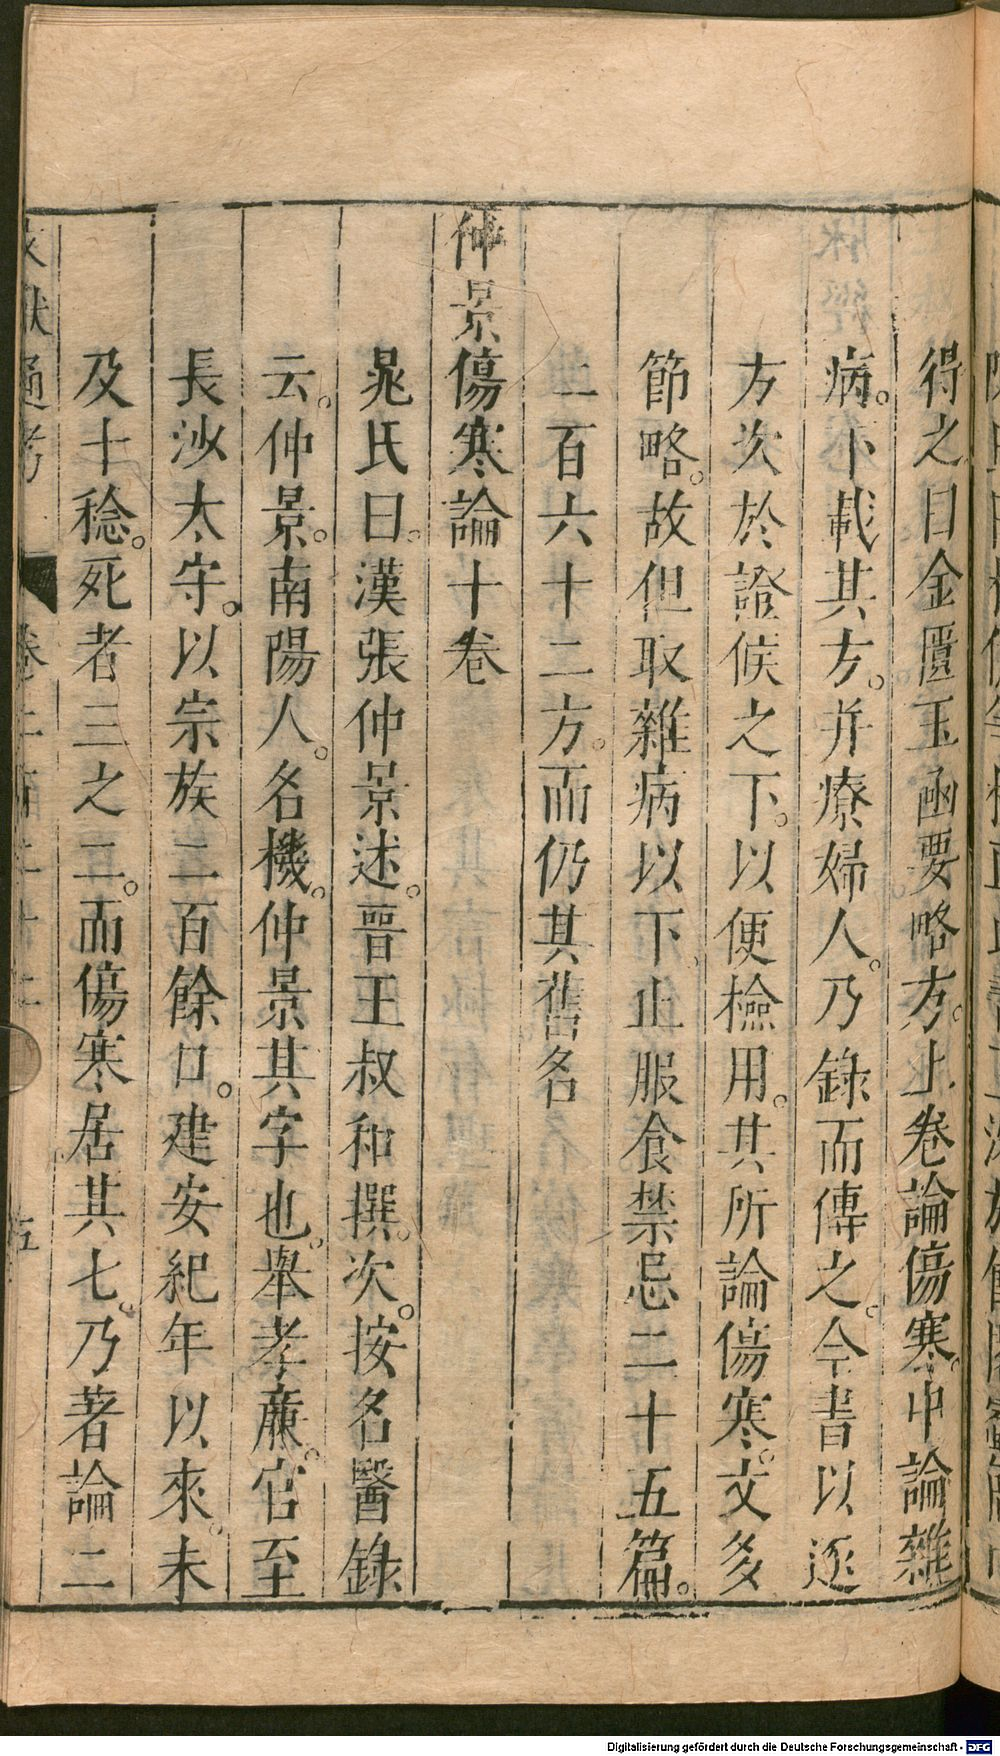 得之曰金匱玉函要略方。上卷論傷寒。中論雜
病。下載其方。并療婦人。乃錄而傳之。今書以逐
方次於證候之下。以便檢用。其所論傷寒。文多
節略。故但取雜病以下。止服食禁忌二十五篇。
二百六十二方。而仍其舊名
仲景傷寒論十卷
晁氏曰。漢張仲景述。晉王叔和撰次。按名醫錄
云。仲景。南陽人。名機。仲景其字也。舉孝廉。官至
長沙太守。以宗族二百餘口。建安紀年以來。未
及十稔。死者三之二。而傷寒居其七。乃著論二
文獻通考
卷二百二十二
五
Digitalisierung gefördert durch die Deutsche Forschungsgemeinschaft - DFG